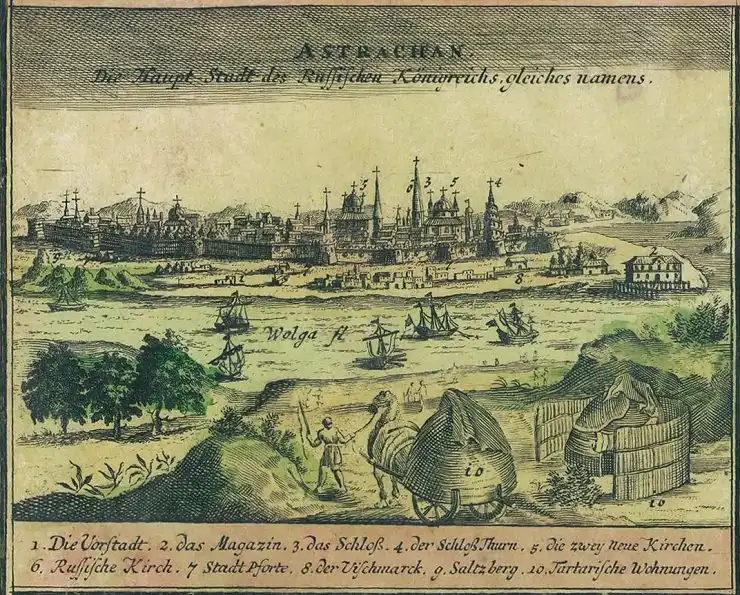 ASTRACHAN.
Die Haupt Stadt des Russischen Königreichs, gleiches namens.
5 6 3 5 4
9 2
8
Wolga fl
10
10
1. Die Vorstadt. 2. das Magazin. 3. das Schloß. 4. der Schloß Thurn. 5. die zwey neue Kirchen.
6. Russische Kirch. 7 Stadt Pforte. 8. der Vischmarck. 9. Saltzberg. 10. Tartarische Wohnungen.